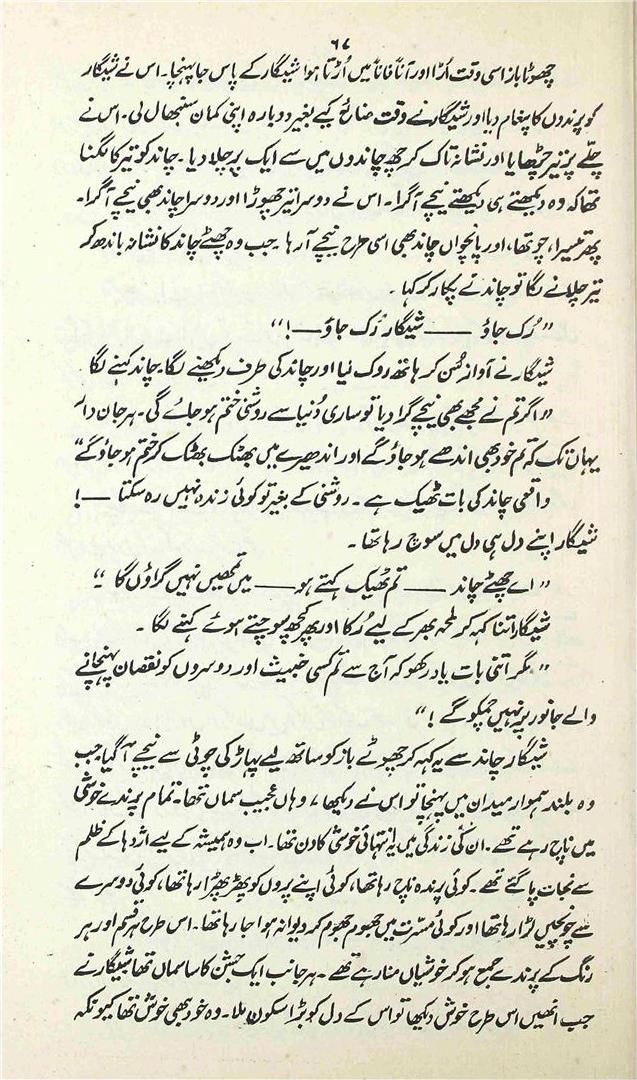 ۶۷
چھوٹا باز اسی وقت اُڑا اور آناً فاناً میں اُڑتا ہوا شیگار کے پاس جا پہنچا۔ اس نے شیگار
کو پرندوں کا پیغام دیا اور شیگار نے وقت ضائع کیے بغیر دوبارہ اپنی کمان سنبھال لی۔ اس نے
چلّے پر تیر چڑھایا اور نشانہ تاک کر چھ چاندوں میں سے ایک پر چلا دیا۔ چاند کو تیر کا لگنا
تھا کہ وہ دیکھتے ہی دیکھتے نیچے آ گرا۔ اس نے دوسرا تیر چھوڑا اور دوسرا چاند بھی نیچے آ گرا۔
پھر تیسرا، چوتھا، اور پانچواں چاند بھی اسی طرح نیچے آ رہا۔ جب وہ چھٹے چاند کا نشانہ باندھ کر
تیر چلانے لگا تو چاند نے پکار کر کہا۔
”رُک جاؤ —— شیگار رُک جاؤ —!“
شیگار نے آواز سُن کر ہاتھ روک لیا اور چاند کی طرف دیکھنے لگا۔ چاند کہنے لگا
”اگر تم نے مجھے بھی نیچے گرا دیا تو ساری دُنیا سے روشنی ختم ہو جائے گی۔ ہر جان دار
یہاں تک کہ تم خود بھی اندھے ہو جاؤ گے اور اندھیرے میں بھٹک بھٹک کر ختم ہو جاؤ گے“
واقعی چاند کی بات ٹھیک ہے۔ روشنی کے بغیر تو کوئی زندہ نہیں رہ سکتا —!
شیگار اپنے دل ہی دل میں سوچ رہا تھا۔
”اے چھٹے چاند —— تم ٹھیک کہتے ہو —— میں تمھیں نہیں گراؤں گا۔“
شیگار اتنا کہہ کر لمحہ بھر کے لیے رُکا اور پھر کچھ سوچتے ہوئے کہنے لگا۔
”مگر اتنی بات یاد رکھو کہ آج سے تم کسی خبیث اور دوسروں کو نقصان پہنچانے
والے جانور پر نہیں چمکو گے!“
شیگار چاند سے یہ کہہ کر چھوٹے باز کو ساتھ لیے پہاڑ کی چوٹی سے نیچے آ گیا۔ جب
وہ بلند ہموار میدان میں پہنچا تو اس نے دیکھا، وہاں عجیب سماں تھا۔ تمام پرندے خوشی
میں ناچ رہے تھے۔ ان کی زندگی میں یہ انتہائی خوشی کا دن تھا۔ اب وہ ہمیشہ کے لیے اژدہا کے ظلم
سے نجات پا گئے تھے۔ کوئی پرندہ ناچ رہا تھا، کوئی اپنے پروں کو پھڑپھڑا رہا تھا، کوئی دوسرے
سے چونچیں لڑا رہا تھا اور کوئی مسرّت میں جھوم جھوم کر دیوانہ ہوا جا رہا تھا۔ اس طرح ہر قسم اور ہر
رنگ کے پرندے جمع ہو کر خوشیاں منا رہے تھے۔ ہر جانب ایک جشن کا سا سماں تھا۔ شیگار نے
جب انھیں اس طرح خوش دیکھا تو اس کے دل کو بڑا سکون ملا۔ وہ خود بھی خوش تھا کیونکہ